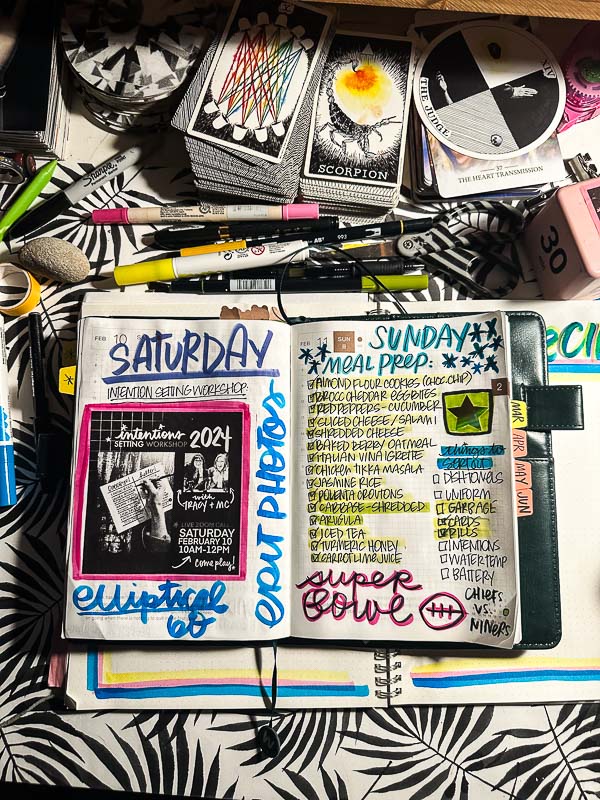 Sharpie
SCORPION
THE JUDGE
XIV
37
THE HEART TRANSMISSION
993
ABT
30
FEB 10
SATURDAY
INTENTION SETTING WORKSHOP:
intentions
SETTING WORKSHOP 2024
with
TRACY + MC
LIVE ZOOM CALL
SATURDAY
FEBRUARY 10
10AM-12PM
come play!
elliptical
60
ERIT PHOTOS
FEB 11 SUN
SUNDAY
MEAL PREP:
ALMOND FLOUR COOKIES (CHOC CHIP)
BROCC CHEDDAR EGG BITES
RED PEPPERS - CUCUMBER
SLICED CHEESE / SALAMI
SHREDDED CHEESE
BAKED BERRY OATMEAL
ITALIAN VINAIGRETTE
CHICKEN TIKKA MASALA
JASMINE RICE
POLENTA CROUTONS
CABBAGE - SHREDDED
ARUGULA
ICED TEA
TURMERIC HONEY
CARROT LIME JUICE
super
Bowl
2
things to
DISHTOWELS
UNIFORM
GARBAGE
CARDS
BILLS
INTENTIONS
WATER TEMP
BATTERY
CHIEFS
VS.
NINERS
MAR
APR
MAY
JUN